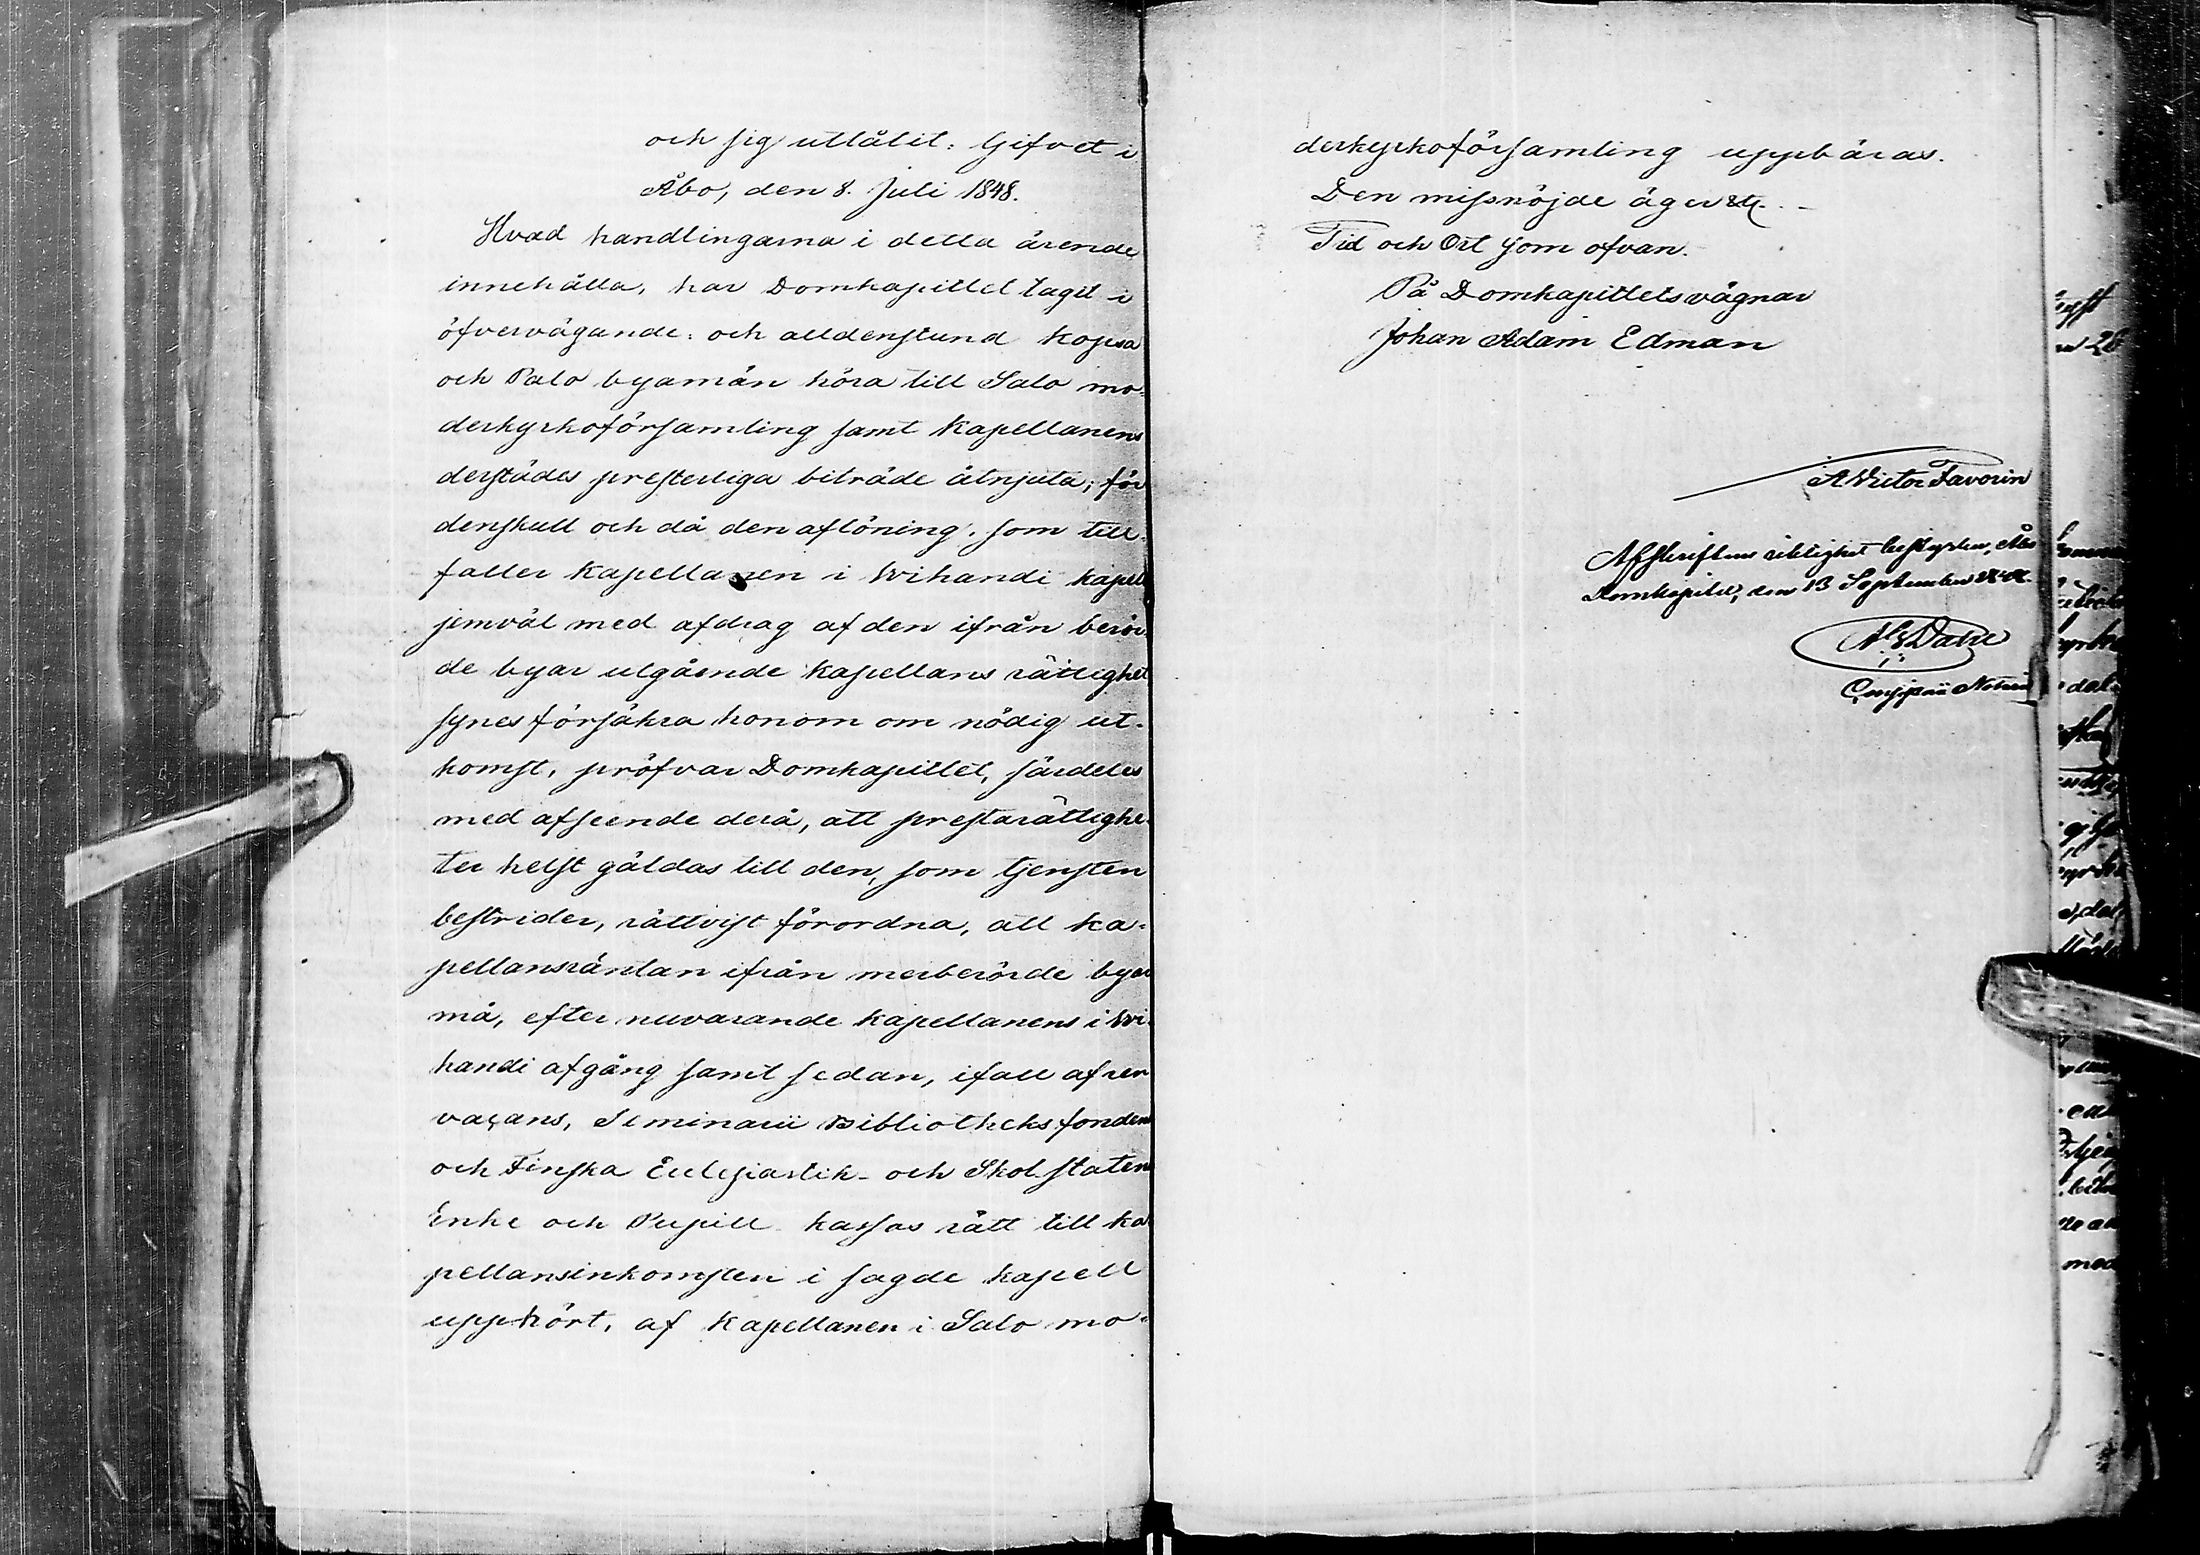 och sig utlåtit: Gifvet i
Åbo, den 8. Juli 1848.
Hvad handlingarna i detta ärende
innehålla, har Domkapitlet tagit i
öfvervägande: och alldenstund Kopsa
och Palo byamän höra till Salo mo-
derkyrkoförsamling samt Kapellanens
derstädes presterliga biträde åtnjuta; för
denskull och då den aflöning, som till-
faller Kapellanen i Wihandi kapell
jemväl med afdrag af den ifrån berör-
de byar utgående kapellans rättighet
synes försäkra honom om nödig ut-
komst, pröfvar Domkapitlet, särdeles
med afseende derå, att prestarättighe-
ter helst gäldas till den, som tjensten
bestrider, rättvist förordna, att ka-
pellansräntan ifrån merberörde byar
må, efter nuvarande kapellanens i Wi-
handi afgång samt sedan, ifall af
vacans, Seminarii Bibliotheksfondens
och Finska Ecclesiastik- och Skol-statens
Enke och Pupill kassas rätt till ka-
pellansinkomsten i sagde kapell
upphört, af Kapellanen i Salo mo-
derkyrkoförsamling uppbäras.
Den missnöjde äger &c.
Tid och Ort som ofvan.
På Domkapitlets vägnar
Johan Adam Edman
A Victor Favorin
Afskriftens riktighet bestyrker, Åbo
Domkapitel, den 13 September
Dahl
Notarie